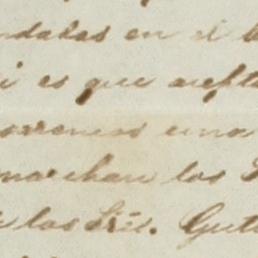 ndadas en el
i es que acepta
correncos una
marchan los
a los Sres. Guti